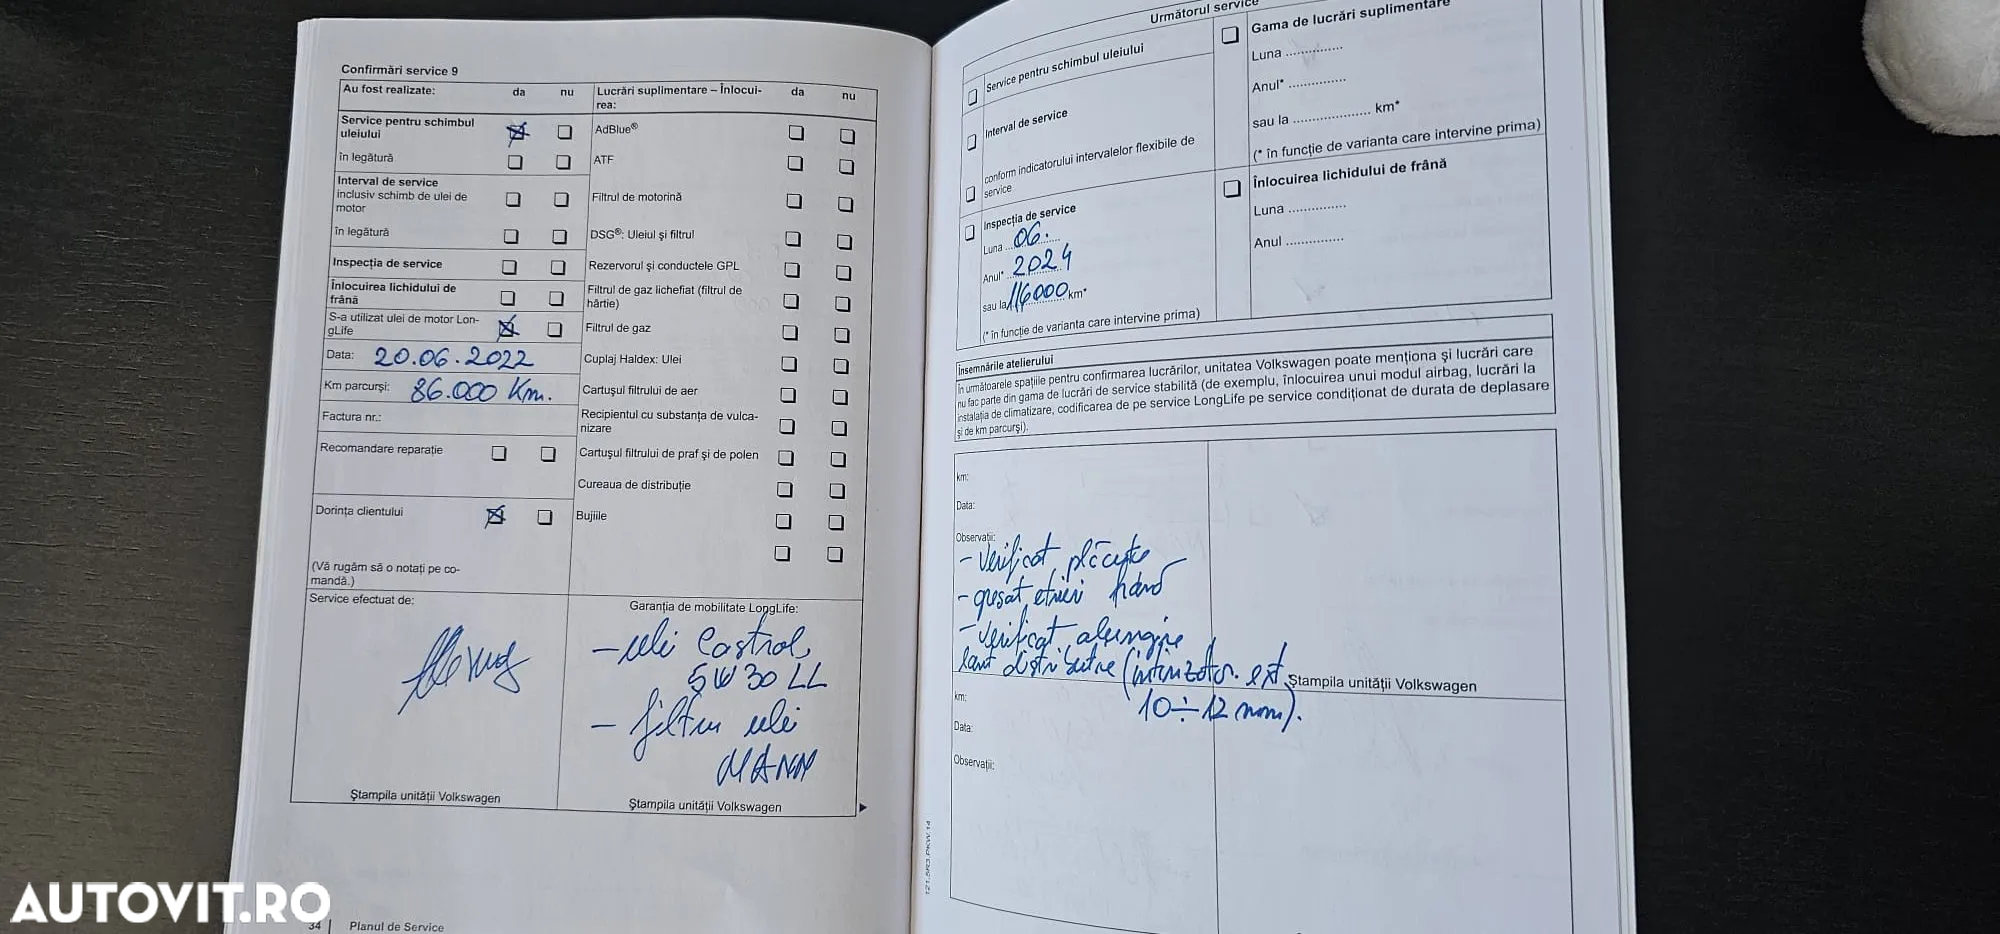 Confirmări service 9
Au fost realizate: da nu
Service pentru schimbul
uleiului
în legătură
Interval de service
inclusiv schimb de ulei de
motor
în legătură
Inspecția de service
Înlocuirea lichidului de
frână
S-a utilizat ulei de motor Lon-
gLife
Data: 20.06.2022
Km parcurși: 86.000 Km.
Factura nr.:
Recomandare reparație
Dorința clientului
(Vă rugăm să o notați pe co-
mandă.)
Service efectuat de:
Ștampila unității Volkswagen
Lucrări suplimentare – Înlocui-
rea: da nu
AdBlue®
ATF
Filtrul de motorină
DSG®: Uleiul și filtrul
Rezervorul și conductele GPL
Filtrul de gaz lichefiat (filtrul de
hârtie)
Filtrul de gaz
Cuplaj Haldex: Ulei
Cartușul filtrului de aer
Recipientul cu substanța de vulca-
nizare
Cartușul filtrului de praf și de polen
Cureaua de distribuție
Bujiile
Garanția de mobilitate LongLife:
– ulei Castrol
5W30 LL
– filtru ulei
MANN
Ștampila unității Volkswagen
34 | Planul de Service
Următorul service
Service pentru schimbul uleiului
Interval de service
conform indicatorului intervalelor flexibile de
service
Inspecția de service
Luna ... 06.
Anul* 2024
sau la 116000 km*
(* în funcție de varianta care intervine prima)
Gama de lucrări suplimentare
Luna ...............
Anul* ...............
sau la .................... km*
(* în funcție de varianta care intervine prima)
Înlocuirea lichidului de frână
Luna ...............
Anul ...............
Însemnările atelierului
În următoarele spațiile pentru confirmarea lucrărilor, unitatea Volkswagen poate menționa și lucrări care
nu fac parte din gama de lucrări de service stabilită (de exemplu, înlocuirea unui modul airbag, lucrări la
instalația de climatizare, codificarea de pe service LongLife pe service condiționat de durata de deplasare
și de km parcurși).
km:
Data:
Observații:
– Verificat plăcuțe
– gresat etrieri
– Verificat alungire
lanț distribuție ext
10÷12 mm).
Ștampila unității Volkswagen
km:
Data:
Observații:
121.5R3.PKW.14
AUTOVIT.RO